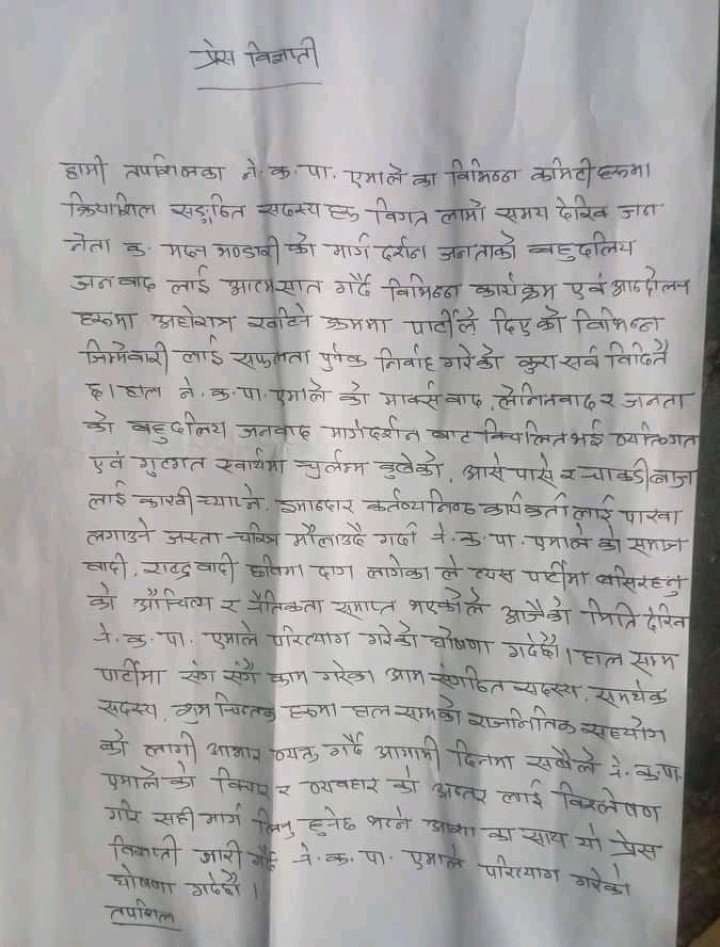 प्रेस विज्ञप्ती
हामी तपशिलका ने. क. पा. एमाले का विभिन्न कमिटी हरूमा
क्रियाशिल सङ्गठित सदस्य हरू विगत लामो समय देखि जन
नेता क. मदन भण्डारी को मार्ग दर्शन जनताको बहुदलिय
जनवाद लाई आत्मसात गर्दै विभिन्न कार्यक्रम एवं आन्दोलन
हरूमा अहोरात्र खटिने क्रममा पार्टीले दिएको विभिन्न
जिम्मेवारी लाई सफलता पुर्वक निर्वाह गरेको कुरा सर्व विदितै
छ। हाल ने. क. पा. एमाले को मार्क्सवाद, लेनिनवाद र जनता
को बहुदलिय जनवाद मार्गदर्शन बाट विचलित भई व्यक्तिगत
एवं गुटगत स्वार्थमा चुर्लुम्म डुबेको, आसे पासे र चाकडीबाज
लाई काखी च्याप्ने, इमान्दार कर्तव्यनिष्ठ कार्यकर्ता लाई पाखा
लगाउने जस्ता चरित्र मौलाउदै गर्दा ने. क. पा. एमाले को समाज
वादी, राष्ट्रवादी छविमा दाग लागेका ले त्यस पर्टीमा बसिरहनु
को औचित्य र नैतिकता समाप्त भएकोले आजैको मिति देखि
ने. क. पा. एमाले परित्याग गरेको घोषणा गर्दछौ। हाल सम्म
पार्टीमा संग संगै काम गरेका आम संगठित सदस्य, समर्थक
सदस्य, शुभ चिन्तक हरूमा हाल सम्मको राजनितिक सहयोग
को लागी आभार व्यक्त गर्दै आगामी दिनमा सबैले ने. क. पा.
एमाले को विचार र व्यवहार को अन्तर लाई विश्लेषण
गरि सही मार्ग लिनु हुनेछ भन्ने आशा का साथ यो प्रेस
विज्ञप्ती जारी गर्दै ने. क. पा. एमाले परित्याग गरेको
घोषणा गर्दछौ।
तपशिल